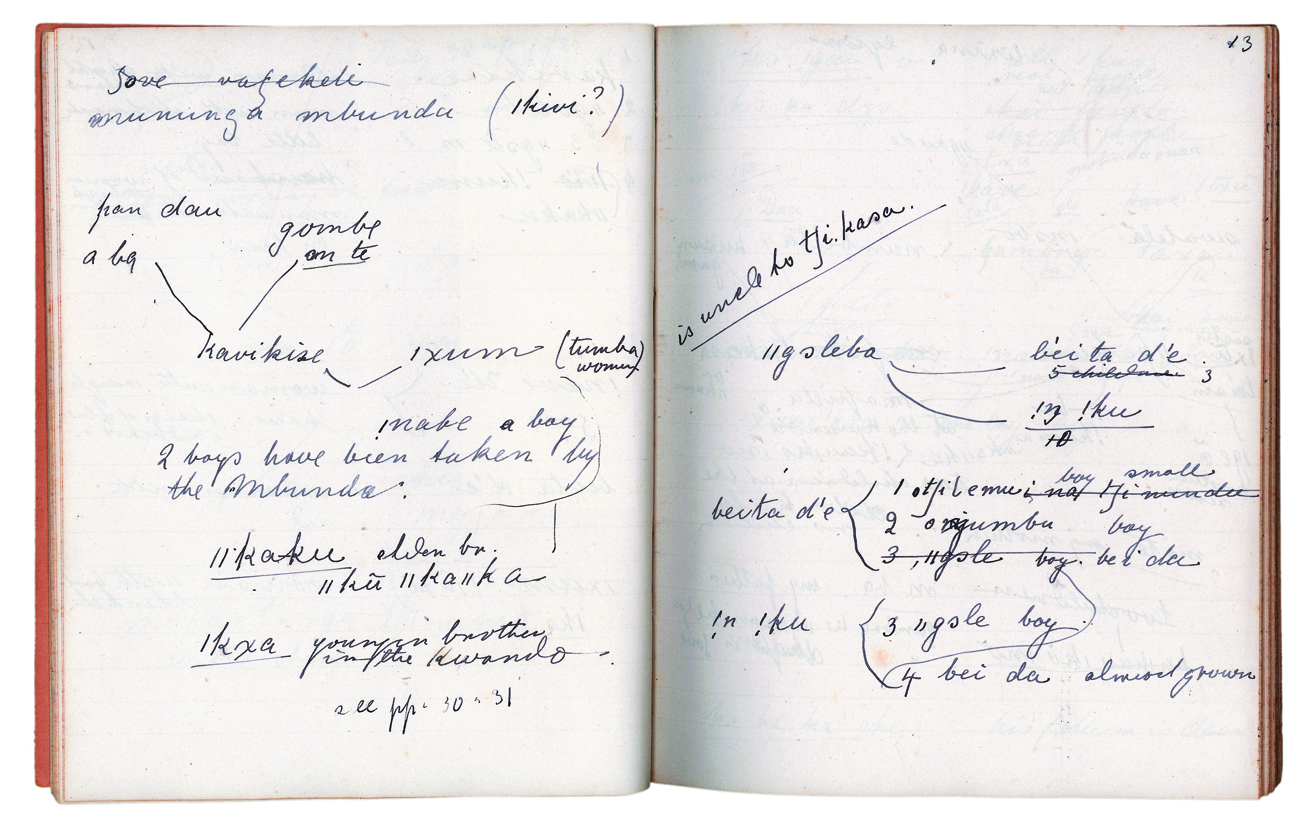 Sove vagekele
mununga mbunda (ǀkivi?)
pan dau
a ba
gombe
on te
Kavikise ǀxum (tumba women)
ǃnabe a boy
2 boys have bien taken by
the Mbunda.
ǁkaku elden br.
ǁkū ǁkaǁka
ǀkxa youngin brother
in the Kwando
see pp. 30 - 31
13
is uncle to tji.kasa.
ǁgsleba beita d'e
5 children 3
ǃŋ ǃku
beita d'e 1 otjilemu boy small
2 boy
3 ǁgsle boy. bei da
ǃn ǃku 3 ǁgsle boy
4 bei da almost grown